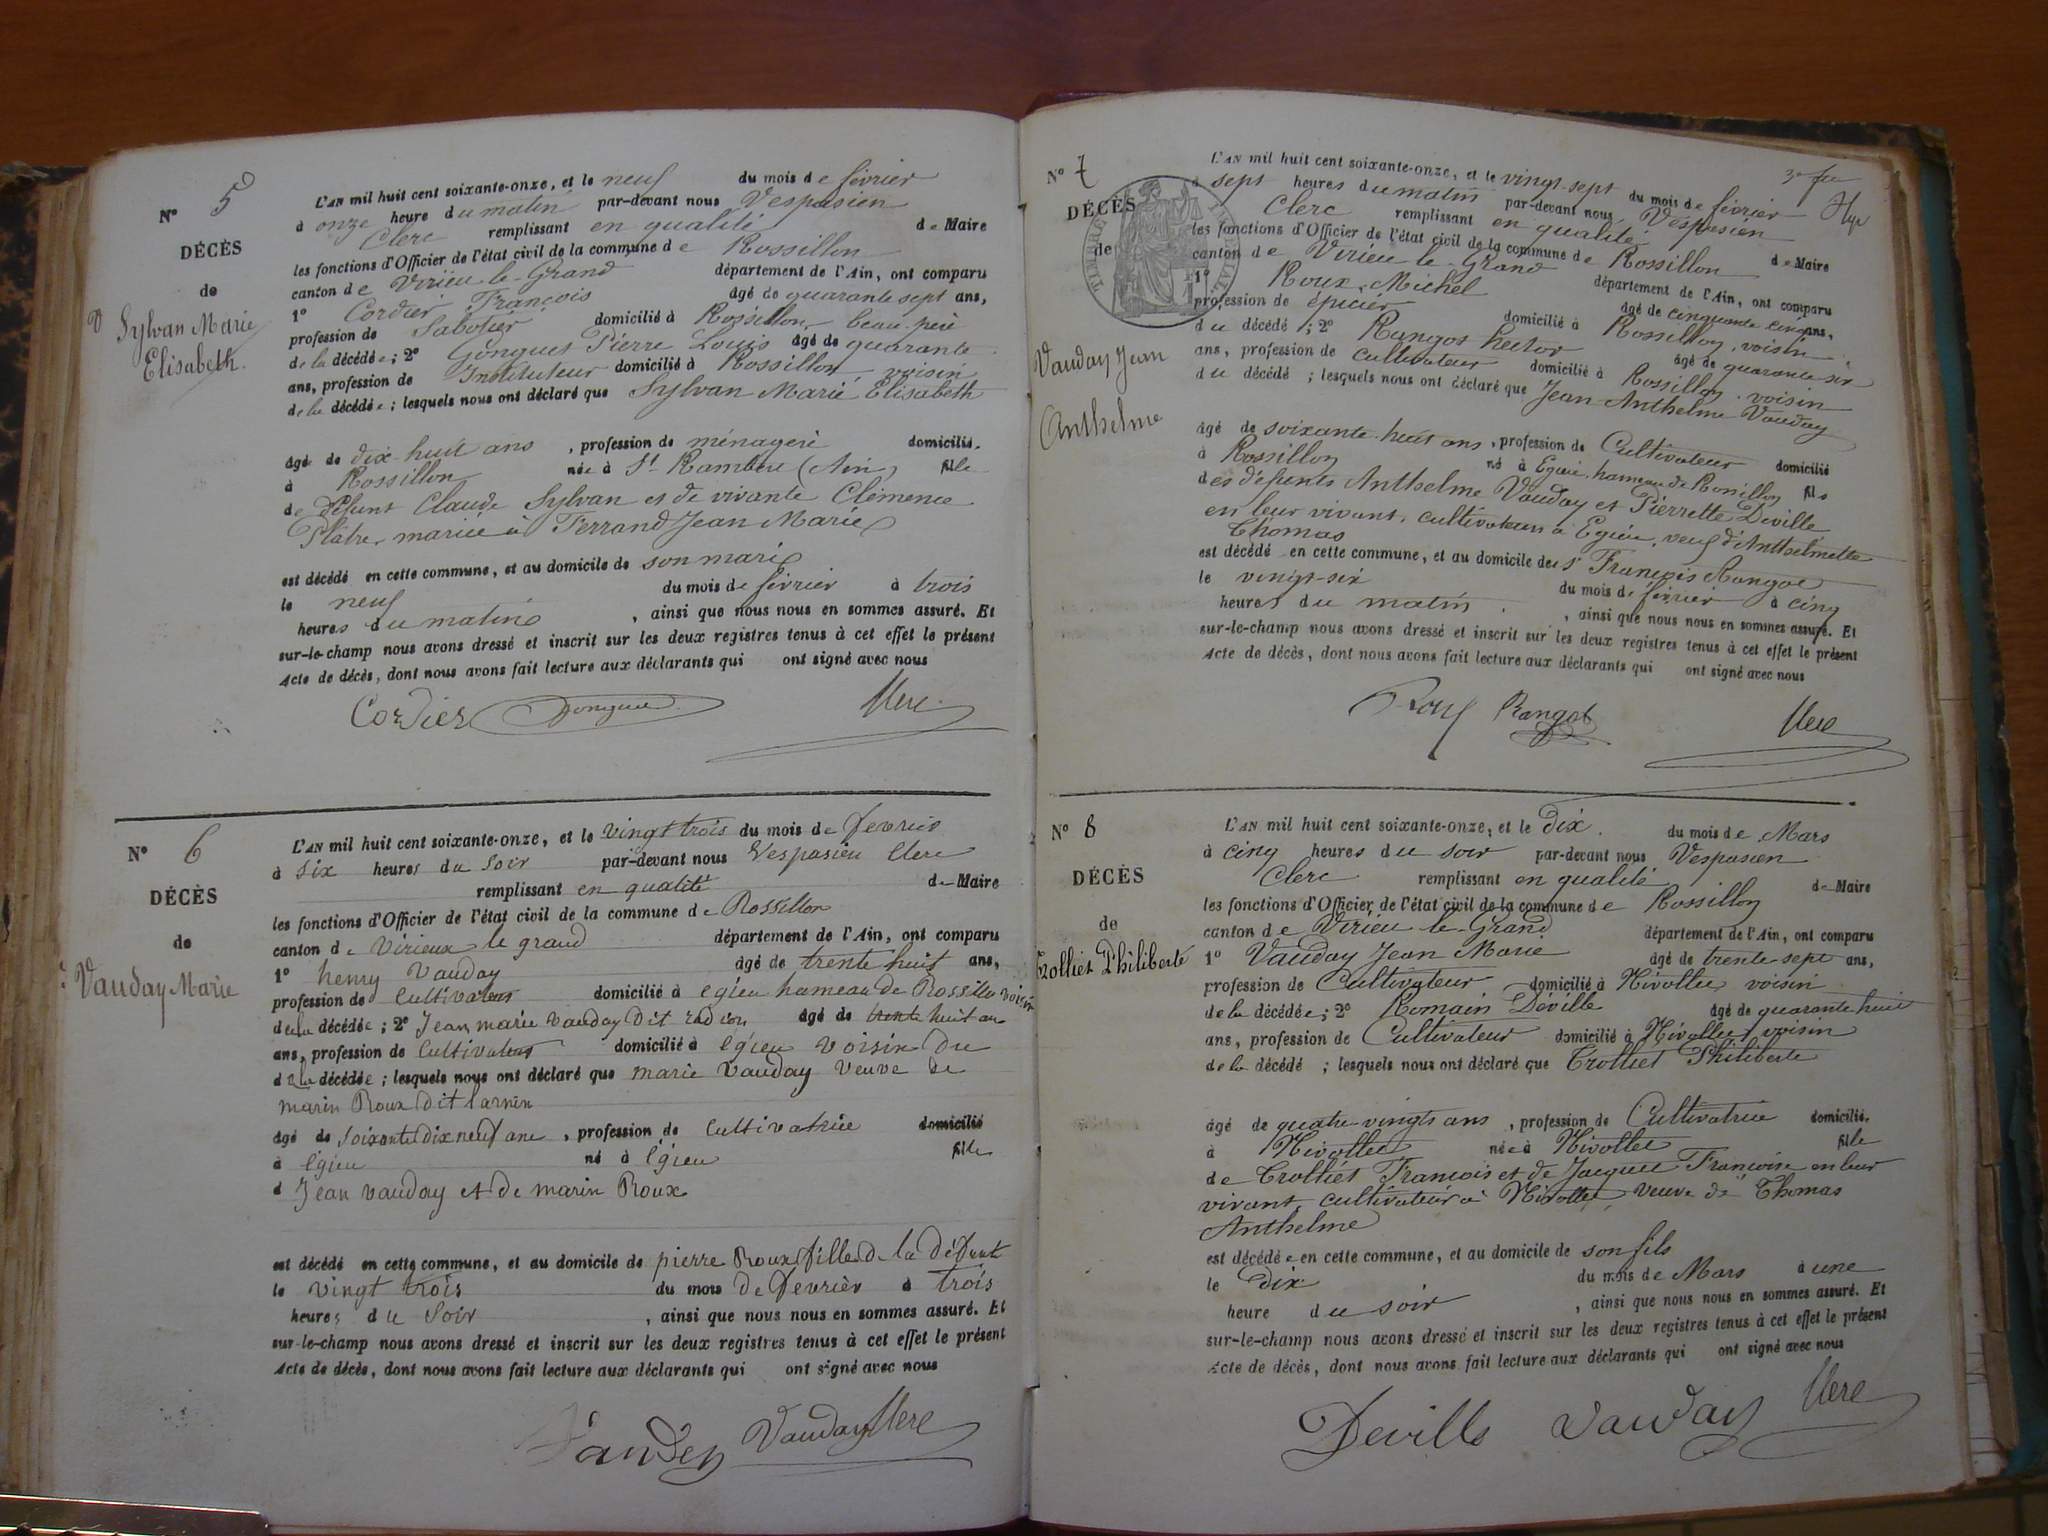 N° 5
DÉCÈS
de
Sylvan Marie
Elisabeth.
L'AN mil huit cent soixante-onze, et le neuf du mois de février
à onze heure du matin par-devant nous Vespasien
Clerc remplissant en qualité de Maire
les fonctions d'Officier de l'état civil de la commune de Rossillon
canton de Virieu le Grand département de l'Ain, ont comparu
1° Cordier François âgé de quarante sept ans,
profession de Sabotier domicilié à Rossillon, beau-père
de la décédée; 2° Pierre Louis âgé de quarante
ans, profession de Instituteur domicilié à Rossillon voisin
de la décédée; lesquels nous ont déclaré que Sylvan Marie Elisabeth
âgé de dix-huit ans, profession de ménagère domicilié.
à Rossillon née à St Rambert (Ain) fille
de défunt Claude Sylvan et de vivante Clémence
Platre, mariée à Ferrand Jean Marie
est décédé en cette commune, et au domicile de son mari
le neuf du mois de février à trois
heures du matin, ainsi que nous nous en sommes assuré. Et
sur-le-champ nous avons dressé et inscrit sur les deux registres tenus à cet effet le présent
Acte de décès, dont nous avons fait lecture aux déclarants qui ont signé avec nous
Cordier Clerc
N° 6
DÉCÈS
de
Vauday Marie
L'AN mil huit cent soixante-onze, et le vingt trois du mois de fevrier
à six heures du soir par-devant nous Vespasien Clerc
remplissant en qualité de Maire
les fonctions d'Officier de l'état civil de la commune de Rossillon
canton de Virieux le grand département de l'Ain, ont comparu
1° henry Vauday âgé de trente huit ans,
profession de Cultivateur domicilié à egieu hameau de Rossillon voisin
de la décédée; 2° Jean marie Vauday Dit âgé de trente huit an
ans, profession de Cultivateur domicilié à Egieu voisin Du
de la décédée; lesquels nous ont déclaré que marie Vauday veuve de
marin Roux Dit
âgé de Soixante dix neuf ans, profession de Cultivatrice domicilié
à Egieu né à Egieu fille
d Jean vauday et de marin Roux
est décédé en cette commune, et au domicile de pierre Roux fille De la Défunte
le vingt trois du mois de fevrier à trois
heures du Soir, ainsi que nous nous en sommes assuré. Et
sur-le-champ nous avons dressé et inscrit sur les deux registres tenus à cet effet le présent
Acte de décès, dont nous avons fait lecture aux déclarants qui ont signé avec nous
Vauday Vauday Clerc
N° 7
DÉCÈS
de
TIMBRE IMPÉRIAL
Vauday Jean
Anthelme
L'AN mil huit cent soixante-onze, et le vingt-sept du mois de février
à sept heures du matin par-devant nous Vespasien
Clerc remplissant en qualité de Maire
les fonctions d'Officier de l'état civil de la commune de Rossillon
canton de Virieu le Grand département de l'Ain, ont comparu
1° Roux Michel âgé de cinquante cinq ans,
profession de épicier domicilié à Rossillon, voisin
du décédé; 2° Rangos hector âgé de quarante six
ans, profession de Cultivateur domicilié à Rossillon, voisin
du décédé; lesquels nous ont déclaré que Jean-Anthelme Vauday
âgé de soixante-huit ans, profession de Cultivateur domicilié
à Rossillon né à Egieu, hameau de Rossillon fils
des défunts Anthelme Vauday et Pierrette Deville
en leur vivant, cultivateurs à Egieu, veuf d'Anthelmette
Thomas
est décédé en cette commune, et au domicile de sr François Rangos
le vingt-six du mois de février à cinq
heures du matin, ainsi que nous nous en sommes assuré. Et
sur-le-champ nous avons dressé et inscrit sur les deux registres tenus à cet effet le présent
Acte de décès, dont nous avons fait lecture aux déclarants qui ont signé avec nous
Roux Rangot Clerc
N° 8
DÉCÈS
de
Trolliet Philiberte
L'AN mil huit cent soixante-onze, et le dix du mois de Mars
à cinq heures du soir par-devant nous Vespasien
Clerc remplissant en qualité de Maire
les fonctions d'Officier de l'état civil de la commune de Rossillon
canton de Virieu le Grand département de l'Ain, ont comparu
1° Vauday Jean Marie âgé de trente-sept ans,
profession de Cultivateur domicilié à Nivollet voisin
de la décédée; 2° Romain Déville âgé de quarante huit
ans, profession de Cultivateur domicilié à Nivollet voisin
de la décédé; lesquels nous ont déclaré que Trolliet Philiberte
âgé de quatre-vingts ans, profession de Cultivatrice domicilié.
à Nivollet née à Nivollet fille
de Trolliet François et de Jacquet Françoise en leur
vivant, cultivateur à Nivollet, veuve de Thomas
Anthelme
est décédée en cette commune, et au domicile de son fils
le dix du mois de Mars à une
heure du soir, ainsi que nous nous en sommes assuré. Et
sur-le-champ nous avons dressé et inscrit sur les deux registres tenus à cet effet le présent
Acte de décès, dont nous avons fait lecture aux déclarants qui ont signé avec nous
Deville Vauday Clerc